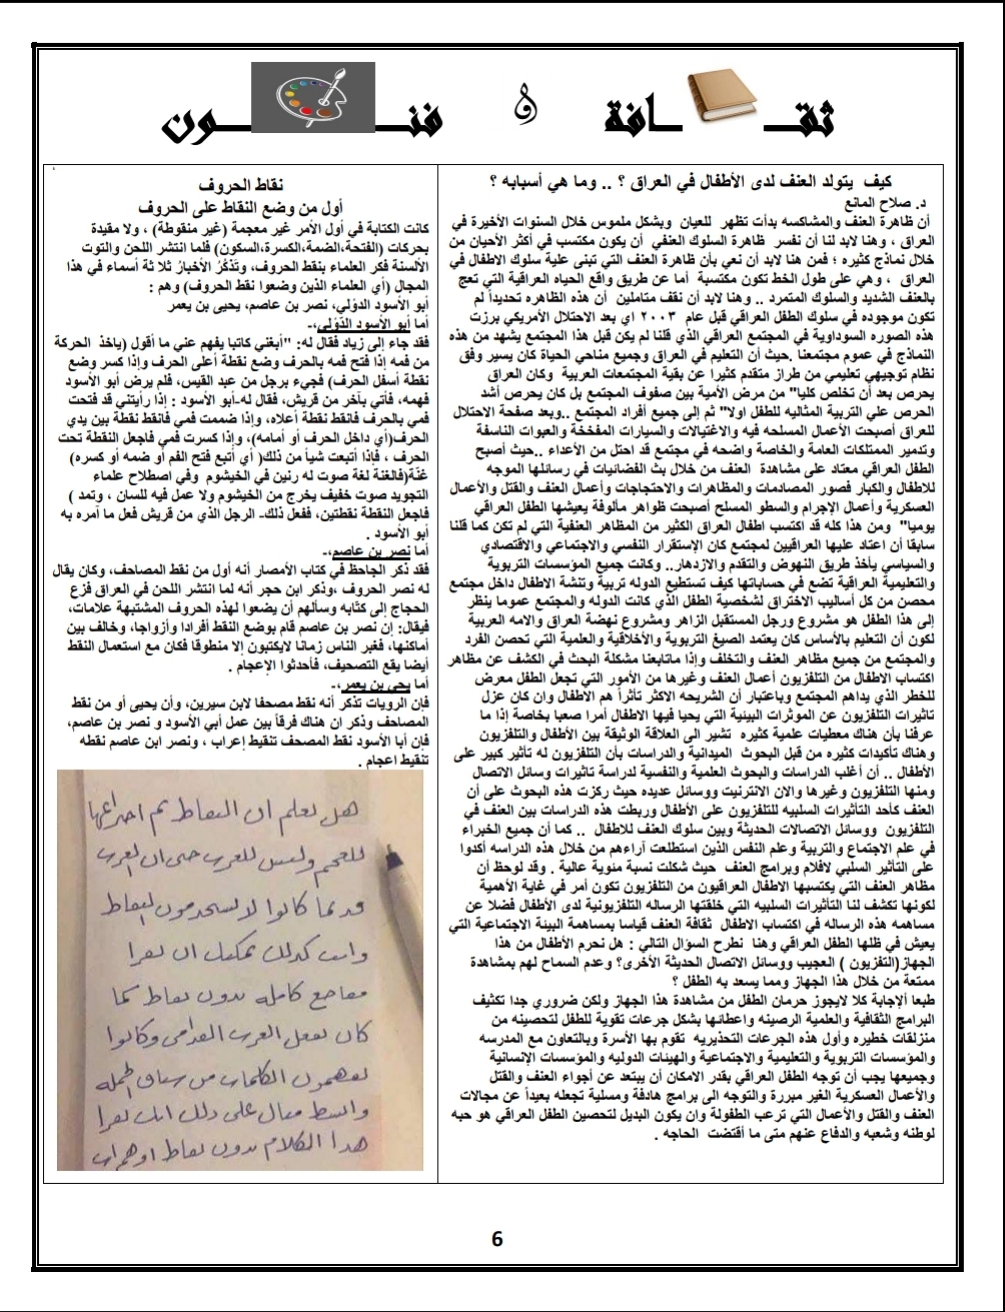 ثقـــافة و فنـــون
كيف يتولد العنف لدى الأطفال في العراق ؟ .. وما هي أسبابه ؟
د. صلاح المانع
أن ظاهرة العنف والمشاكسه بدأت تظهر للعيان وبشكل ملموس خلال السنوات الأخيرة في
العراق ، وهنا لابد لنا أن نفسر ظاهرة السلوك العنفي أن يكون مكتسب في أكثر الأحيان من
خلال نماذج كثيره ؛ فمن هنا لابد أن نعي بأن ظاهرة العنف التي تبنى علية سلوك الاطفال في
العراق ، وهي على طول الخط تكون مكتسبة أما عن طريق واقع الحياه العراقية التي تعج
بالعنف الشديد والسلوك المتمرد .. وهنا لابد أن نقف متاملين أن هذه الظاهره تحديداً لم
تكون موجوده في سلوك الطفل العراقي قبل عام ٢٠٠٣ اي بعد الاحتلال الأمريكي برزت
هذه الصوره السوداوية في المجتمع العراقي الذي قلنا لم يكن قبل هذا المجتمع يشهد من هذه
النماذج في عموم مجتمعنا .حيث أن التعليم في العراق وجميع مناحي الحياة كان يسير وفق
نظام توجيهي تعليمي من طراز متقدم كثيرا عن بقية المجتمعات العربية وكان العراق
يحرص بعد أن تخلص كليا" من مرض الأمية بين صفوف المجتمع بل كان يحرص أشد
الحرص علي التربية المثاليه للطفل اولا" ثم إلى جميع أفراد المجتمع ..وبعد صفحة الاحتلال
للعراق أصبحت الأعمال المسلحه فيه والاغتيالات والسيارات المفخخة والعبوات الناسفة
وتدمير الممتلكات العامة والخاصة واضحه في مجتمع قد احتل من الأعداء ..حيث أصبح
الطفل العراقي معتاد على مشاهدة العنف من خلال بث الفضائيات في رسائلها الموجه
للاطفال والكبار فصور المصادمات والمظاهرات والاحتجاجات وأعمال العنف والقتل والأعمال
العسكرية وأعمال الإجرام والسطو المسلح أصبحت ظواهر مألوفة يعيشها الطفل العراقي
يوميا" ومن هذا كله قد اكتسب اطفال العراق الكثير من المظاهر العنفية التي لم تكن كما قلنا
سابقا أن اعتاد عليها العراقيين لمجتمع كان الإستقرار النفسي والاجتماعي والاقتصادي
والسياسي يأخذ طريق النهوض والتقدم والازدهار.. وكانت جميع المؤسسات التربوية
والتعليمية العراقية تضع في حساباتها كيف تستطيع الدوله تربية وتنشة الاطفال داخل مجتمع
محصن من كل أساليب الاختراق لشخصية الطفل الذي كانت الدوله والمجتمع عموما ينظر
إلى هذا الطفل هو مشروع ورجل المستقبل الزاهر ومشروع نهضة العراق والامه العربية
لكون أن التعليم بالأساس كان يعتمد الصيغ التربوية والأخلاقية والعلمية التي تحصن الفرد
والمجتمع من جميع مظاهر العنف والتخلف وإذا ماتابعنا مشكلة البحث في الكشف عن مظاهر
اكتساب الاطفال من التلفزيون أعمال العنف وغيرها من الأمور التي تجعل الطفل معرض
للخطر الذي يداهم المجتمع وباعتبار أن الشريحه الاكثر تأثراً هم الاطفال وان كان عزل
تاثيرات التلفزيون عن الموثرات البيئية التي يحيا فيها الاطفال أمرا صعبا بخاصة إذا ما
عرفنا بأن هناك معطيات علمية كثيره تشير الى العلاقة الوثيقة بين الأطفال والتلفزيون
وهناك تأكيدات كثيره من قبل البحوث الميدانية والدراسات بأن التلفزيون له تأثير كبير على
الأطفال .. أن أغلب الدراسات والبحوث العلمية والنفسية لدراسة تاثيرات وسائل الاتصال
ومنها التلفزيون وغيرها والان الانترنيت ووسائل عديده حيث ركزت هذه البحوث على أن
العنف كأحد التأثيرات السلبيه للتلفزيون على الأطفال وربطت هذه الدراسات بين العنف في
التلفزيون ووسائل الاتصالات الحديثة وبين سلوك العنف للاطفال .. كما أن جميع الخبراء
في علم الاجتماع والتربية وعلم النفس الذين استطلعت آراءهم من خلال هذه الدراسه أكدوا
على التأثير السلبي لافلام وبرامج العنف حيث شكلت نسبة مئوية عالية . وقد لوحظ أن
مظاهر العنف التي يكتسبها الاطفال العراقيون من التلفزيون تكون أمر في غاية الأهمية
لكونها تكشف لنا التأثيرات السلبيه التي خلقتها الرساله التلفزيونية لدى الأطفال فضلا عن
مساهمه هذه الرساله في اكتساب الاطفال ثقافة العنف قياسا بمساهمة البيئة الاجتماعية التي
يعيش في ظلها الطفل العراقي وهنا نطرح السؤال التالي : هل نحرم الأطفال من هذا
الجهاز(التفزيون ) العجيب ووسائل الاتصال الحديثة الأخرى؟ وعدم السماح لهم بمشاهدة
ممتعة من خلال هذا الجهاز ومما يسعد به الطفل ؟
طبعا ألإجابة كلا لايجوز حرمان الطفل من مشاهدة هذا الجهاز ولكن ضروري جدا تكثيف
البرامج الثقافية والعلمية الرصينه واعطائها بشكل جرعات تقوية للطفل لتحصينه من
منزلقات خطيره وأول هذه الجرعات التحذيريه تقوم بها الأسرة وبالتعاون مع المدرسه
والمؤسسات التربوية والتعليمية والاجتماعية والهيئات الدوليه والمؤسسات الإنسانية
وجميعها يجب أن توجه الطفل العراقي بقدر الامكان أن يبتعد عن أجواء العنف والقتل
والأعمال العسكرية الغير مبررة والتوجه الى برامج هادفة ومسلية تجعله بعيداً عن مجالات
العنف والقتل والأعمال التي ترعب الطفولة وان يكون البديل لتحصين الطفل العراقي هو حبه
لوطنه وشعبه والدفاع عنهم متى ما أقتضت الحاجه .
نقاط الحروف
أول من وضع النقاط على الحروف
كانت الكتابة في أول الأمر غير معجمة (غير منقوطة) ، ولا مقيدة
بحركات (الفتحة،الضمة،الكسرة،السكون) فلما انتشر اللحن والتوت
الألسنة فكر العلماء بنقط الحروف، وتَذكُرُ الأخبارُ ثلا ثة أسماء في هذا
المجال (أي العلماء الذين وضعوا نقط الحروف) وهم :
أبو الأسود الدؤلي، نصر بن عاصم، يحيى بن يعمر
أما أبو الأسود الدّؤلي،-
فقد جاء إلى زياد فقال له: "أبغني كاتبا يفهم عني ما أقول (ياخذ الحركة
من فمه إذا فتح فمه بالحرف وضع نقطة أعلى الحرف وإذا كسر وضع
نقطة أسفل الحرف) فجيء برجل من عبد القيس، فلم يرض أبو الأسود
فهمه، فأتي بآخر من قريش، فقال له-أبو الأسود : إذا رأيتني قد فتحت
فمي بالحرف فانقط نقطة أعلاه، وإذا ضممت فمي فانقط نقطة بين يدي
الحرف(أي داخل الحرف أو أمامه)، وإذا كسرت فمي فاجعل النقطة تحت
الحرف ، فإذا أتبعت شيأ من ذلك( أي أتبع فتح الفم أو ضمه أو كسره)
غنّة(فالغنة لغة صوت له رنين في الخيشوم وفي اصطلاح علماء
التجويد صوت خفيف يخرج من الخيشوم ولا عمل فيه للسان ، وتمد )
فاجعل النقطة نقطتين، ففعل ذلك- الرجل الذي من قريش فعل ما آمره به
أبو الأسود .
أما نصر بن عاصم،-
فقد ذكر الجاحظ في كتاب الأمصار أنه أول من نقط المصاحف، وكان يقال
له نصر الحروف ،وذكر ابن حجر أنه لما انتشر اللحن في العراق فزع
الحجاج إلى كتابه وسألهم أن يضعوا لهذه الحروف المشتبهة علامات،
فيقال: إن نصر بن عاصم قام بوضع النقط أفرادا وأزواجا، وخالف بين
أماكنها، فغبر الناس زمانا لايكتبون إلا منطوقا فكان مع استعمال النقط
أيضا يقع التصحيف، فأحدثوا الإعجام .
أما يحي بن يعمر،-
فإن الرويات تذكر أنه نقط مصحفا لابن سيرين، وأن يحيى أو من نقط
المصاحف وذكر ان هناك فرقاً بين عمل أبي الأسود و نصر بن عاصم،
فإن أبا الأسود نقط المصحف تنقيط إعراب ، ونصر ابن عاصم نقطه
تنقيط اعجام .
هل تعلم ان النقاط تم اختراعها
للعجم وليس للعرب حتى ان العرب
قديما كانوا لا يستخدمون النقاط
وانت كذلك يمكنك ان تقرا
مقاطع كامله بدون نقاط كما
كان يفعل العرب القدامى وكانوا
يفهمون الكلمات من سياق الجمله
وابسط مثال على ذلك انك تقرا
هذا الكلام بدون نقاط او همزات
6